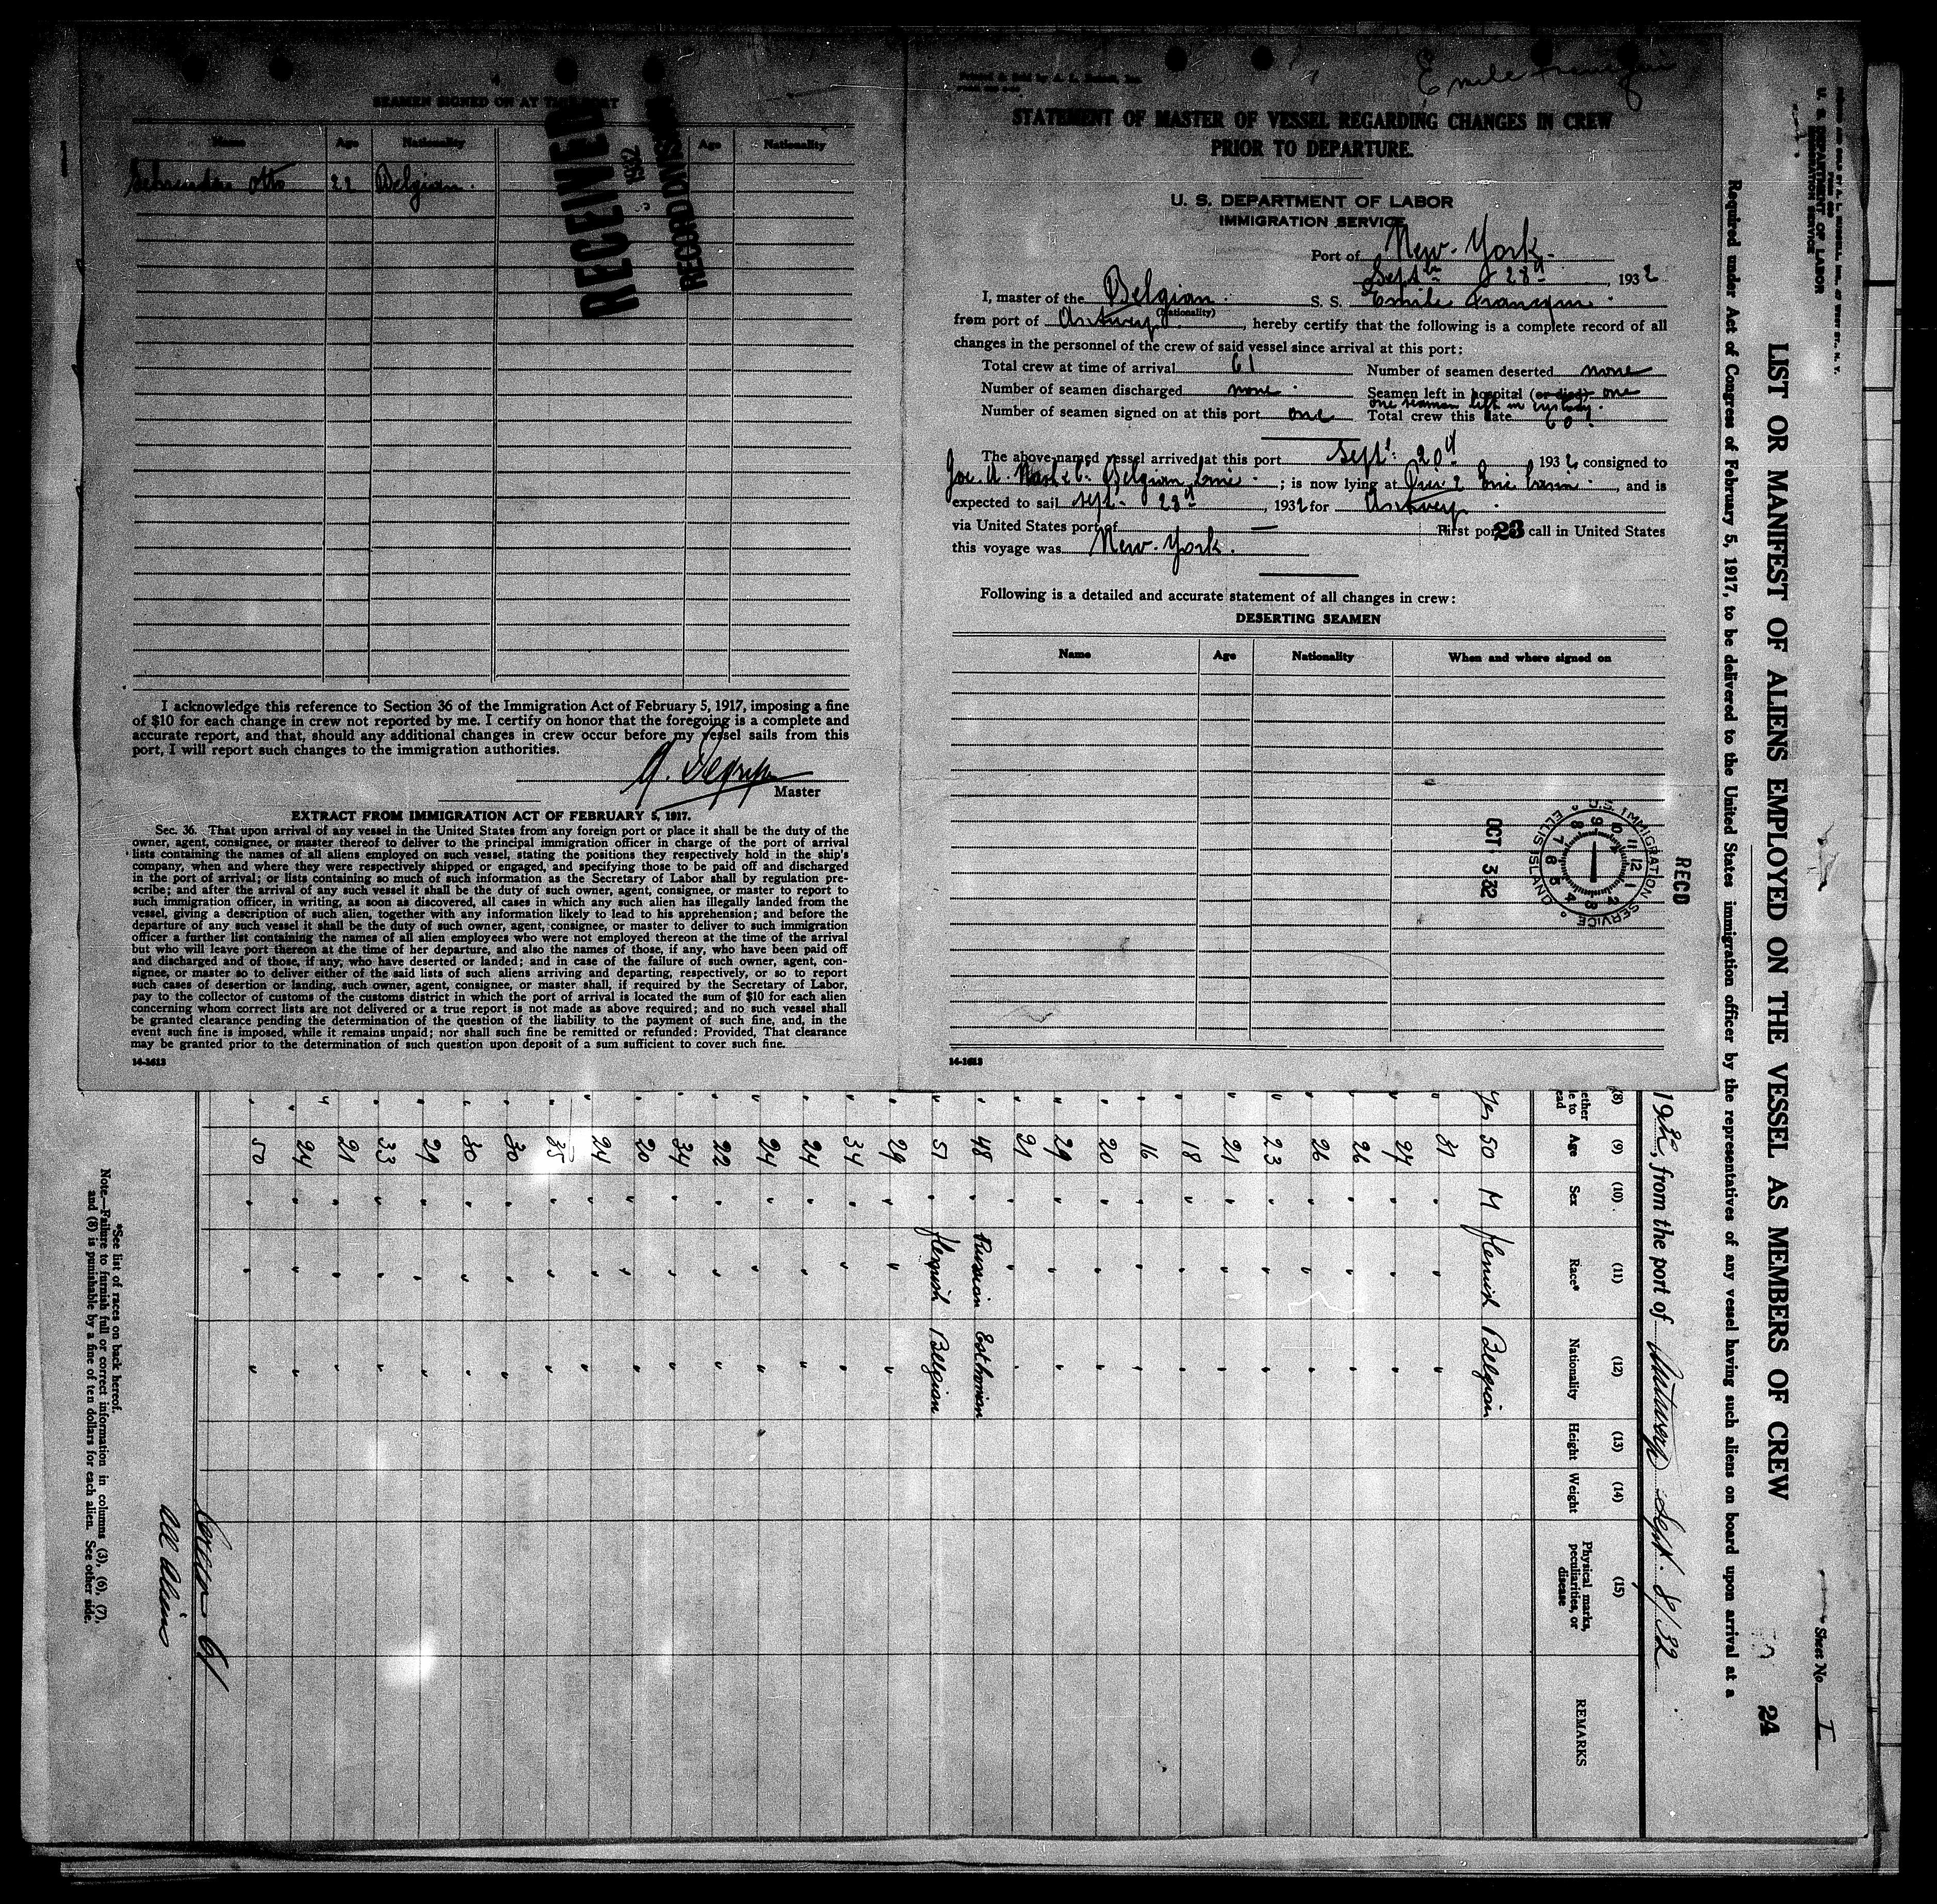 SEAMEN SIGNED ON AT THIS PORT
Name Age Nationality Age Nationality
Otto 22 Belgian.
RECEIVED
RECORD DIVISION
I acknowledge this reference to Section 36 of the Immigration Act of February 5, 1917, imposing a fine
of $10 for each change in crew not reported by me. I certify on honor that the foregoing is a complete and
accurate report, and that, should any additional changes in crew occur before my vessel sails from this
port, I will report such changes to the immigration authorities.
Master
EXTRACT FROM IMMIGRATION ACT OF FEBRUARY 5, 1917.
Sec. 36. That upon arrival of any vessel in the United States from any foreign port or place it shall be the duty of the
owner, agent, consignee, or master thereof to deliver to the principal immigration officer in charge of the port of arrival
lists containing the names of all aliens employed on such vessel, stating the positions they respectively hold in the ship's
company, when and where they were respectively shipped or engaged, and specifying those to be paid off and discharged
in the port of arrival; or lists containing so much of such information as the Secretary of Labor shall by regulation pre-
scribe; and after the arrival of any such vessel it shall be the duty of such owner, agent, consignee, or master to report to
such immigration officer, in writing, as soon as discovered, all cases in which any such alien has illegally landed from the
vessel, giving a description of such alien, together with any information likely to lead to his apprehension; and before the
departure of any such vessel it shall be the duty of such owner, agent, consignee, or master to deliver to such immigration
officer a further list containing the names of all alien employees who were not employed thereon at the time of the arrival
but who will leave port thereon at the time of her departure, and also the names of those, if any, who have been paid off
and discharged and of those, if any, who have deserted or landed; and in case of the failure of such owner, agent, con-
signee, or master so to deliver either of the said lists of such aliens arriving and departing, respectively, or so to report
such cases of desertion or landing, such owner, agent, consignee, or master shall, if required by the Secretary of Labor,
pay to the collector of customs of the customs district in which the port of arrival is located the sum of $10 for each alien
concerning whom correct lists are not delivered or a true report is not made as above required; and no such vessel shall
be granted clearance pending the determination of the question of the liability to the payment of such fine, and, in the
event such fine is imposed, while it remains unpaid; nor shall such fine be remitted or refunded; Provided, That clearance
may be granted prior to the determination of such question upon deposit of a sum sufficient to cover such fine.
14-1613
Emile Francqui
STATEMENT OF MASTER OF VESSEL REGARDING CHANGES IN CREW
PRIOR TO DEPARTURE.
U. S. DEPARTMENT OF LABOR
IMMIGRATION SERVICE
Port of New-York.
Sept 28, 1932
I, master of the Belgian S. S. Emile Francqui
(Nationality)
from port of Antwerp, hereby certify that the following is a complete record of all
changes in the personnel of the crew of said vessel since arrival at this port:
Total crew at time of arrival 61 Number of seamen deserted none
Number of seamen discharged none Seamen left in hospital (or died) one
one seaman left in custody.
Number of seamen signed on at this port one Total crew this date 60
The above-named vessel arrived at this port Sept. 20, 1932, consigned to
Belgian Line; is now lying at Pier 2 Erie Basin, and is
expected to sail Sept. 28, 1932 for Antwerp
via United States port of — First port 23 call in United States
this voyage was New-York.
Following is a detailed and accurate statement of all changes in crew:
DESERTING SEAMEN
Name Age Nationality When and where signed on
RECD
U.S. IMMIGRATION SERVICE
ELLIS ISLAND
OCT 3 32
14-1613
U. S. DEPARTMENT OF LABOR
IMMIGRATION SERVICE
Sheet No. I
24
LIST OR MANIFEST OF ALIENS EMPLOYED ON THE VESSEL AS MEMBERS OF CREW
Required under Act of Congress of February 5, 1917, to be delivered to the United States immigration officer by the representatives of any vessel having such aliens on board upon arrival at a
1932, from the port of Antwerp Sept. 8/32
(8) (9) (10) (11) (12) (13) (14) (15)
Age Sex Race* Nationality Height Weight Physical marks, peculiarities, or disease REMARKS
Yes 50 M flemish Belgian
31
27
26
26
23
21
18
16
20
29
21
48 Russian Esthonian
51 flemish Belgian
29
34
24
24
22
34
20
24
35
30
30
29
33
21
24
50
61
all aliens
*See list of races on back hereof.
Note.—Failure to furnish full or correct information in columns (3), (6), (7),
and (8) is punishable by a fine of ten dollars for each alien. See other side.